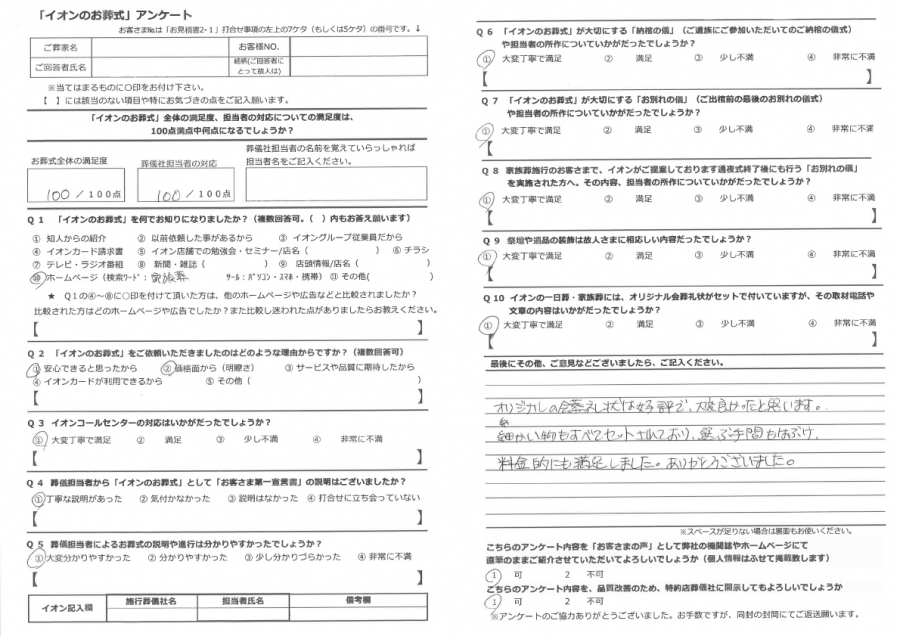 「イオンのお葬式」アンケート
お客さま№は「お見積書2-1」打合せ事項の左上の7ケタ（もしくは5ケタ）の番号です。↓
ご葬家名 お客様NO.
ご回答者氏名 続柄(ご回答者にとって故人は)
※当てはまるものに○印をお付け下さい。
【　】には該当のない項目や特にお気づきの点をご記入願います。
「イオンのお葬式」全体の満足度、担当者の対応についての満足度は、
100点満点中何点になるでしょうか？
お葬式全体の満足度 葬儀社担当者の対応
葬儀社担当者の名前を覚えていらっしゃれば
担当者名をご記入ください。
100 / 100点 100 / 100点
Q 1 「イオンのお葬式」を何でお知りになりましたか？（複数回答可。（　）内もお答え願います）
① 知人からの紹介 ② 以前依頼した事があるから ③ イオングループ従業員だから
④ イオンカード請求書 ⑤ イオン店舗での勉強会・セミナー/店名（　） ⑥ チラシ
⑦ テレビ・ラジオ番組 ⑧ 新聞・雑誌（　） ⑨ 店頭情報/店名（　）
⑩ ホームページ（検索ワード： 家族葬 ツール：パソコン・スマホ・携帯） ⑪ その他(　)
★ Q1の④～⑧に○印を付けて頂いた方は、他のホームページや広告などと比較されましたか？
比較された方はどのホームページや広告でしたか？また比較し迷われた点がありましたらお教えください。
【　】
Q 2 「イオンのお葬式」をご依頼いただきましたのはどのような理由からですか？（複数回答可）
① 安心できると思ったから ② 価格面から（明瞭さ） ③ サービスや品質に期待したから
④ イオンカードが利用できるから ⑤ その他（　）
【　】
Q 3 イオンコールセンターの対応はいかがだったでしょうか？
① 大変丁寧で満足 ② 満足 ③ 少し不満 ④ 非常に不満
【　】
Q 4 葬儀担当者から「イオンのお葬式」として「お客さま第一宣言書」の説明はございましたか？
① 丁寧な説明があった ② 気付かなかった ③ 説明はなかった ④ 打合せに立ち会っていない
【　】
Q 5 葬儀担当者によるお葬式の説明や進行は分かりやすかったでしょうか？
① 大変分かりやすかった ② 分かりやすかった ③ 少し分かりづらかった ④ 非常に不満
【　】
イオン記入欄 施行葬儀社名 担当者氏名 備考欄
Q 6 「イオンのお葬式」が大切にする「納棺の儀」（ご遺族にご参加いただいてのご納棺の儀式）
や担当者の所作についていかがだったでしょうか？
① 大変丁寧で満足 ② 満足 ③ 少し不満 ④ 非常に不満
【　】
Q 7 「イオンのお葬式」が大切にする「お別れの儀」（ご出棺前の最後のお別れの儀式）
や担当者の所作についていかがだったでしょうか？
① 大変丁寧で満足 ② 満足 ③ 少し不満 ④ 非常に不満
【
Q 8 家族葬施行のお客さまで、イオンがご提案しております通夜式終了後にも行う「お別れの儀」
を実施された方へ。その内容、担当者の所作についていかがだったでしょうか？
① 大変丁寧で満足 ② 満足 ③ 少し不満 ④ 非常に不満
【　】
Q 9 祭壇や遺品の装飾は故人さまに相応しい内容だったでしょうか？
① 大変丁寧で満足 ② 満足 ③ 少し不満 ④ 非常に不満
【　】
Q 10 イオンの一日葬・家族葬には、オリジナル会葬礼状がセットで付いていますが、その取材電話や
文章の内容はいかがだったでしょうか？
① 大変丁寧で満足 ② 満足 ③ 少し不満 ④ 非常に不満
【　】
最後にその他、ご意見などございましたら、ご記入ください。
オリジナルの会葬礼状は好評で、大変良かったと思います。
細かい物もすべてセットされており、選ぶ手間もはぶけ、
料金的にも満足しました。ありがとうございました。
※スペースが足りない場合は裏面もお使いください。
こちらのアンケート内容を「お客さまの声」として弊社の機関誌やホームページにて
直筆のままご紹介させていただいてよろしいでしょうか（個人情報はふせて掲載致します）
1 可 2 不可
こちらのアンケート内容を、品質改善のため、特約店葬儀社に開示してもよろしいでしょうか
1 可 2 不可
※アンケートのご協力ありがとうございました。お手数ですが、同封の封筒にてご返送願います。